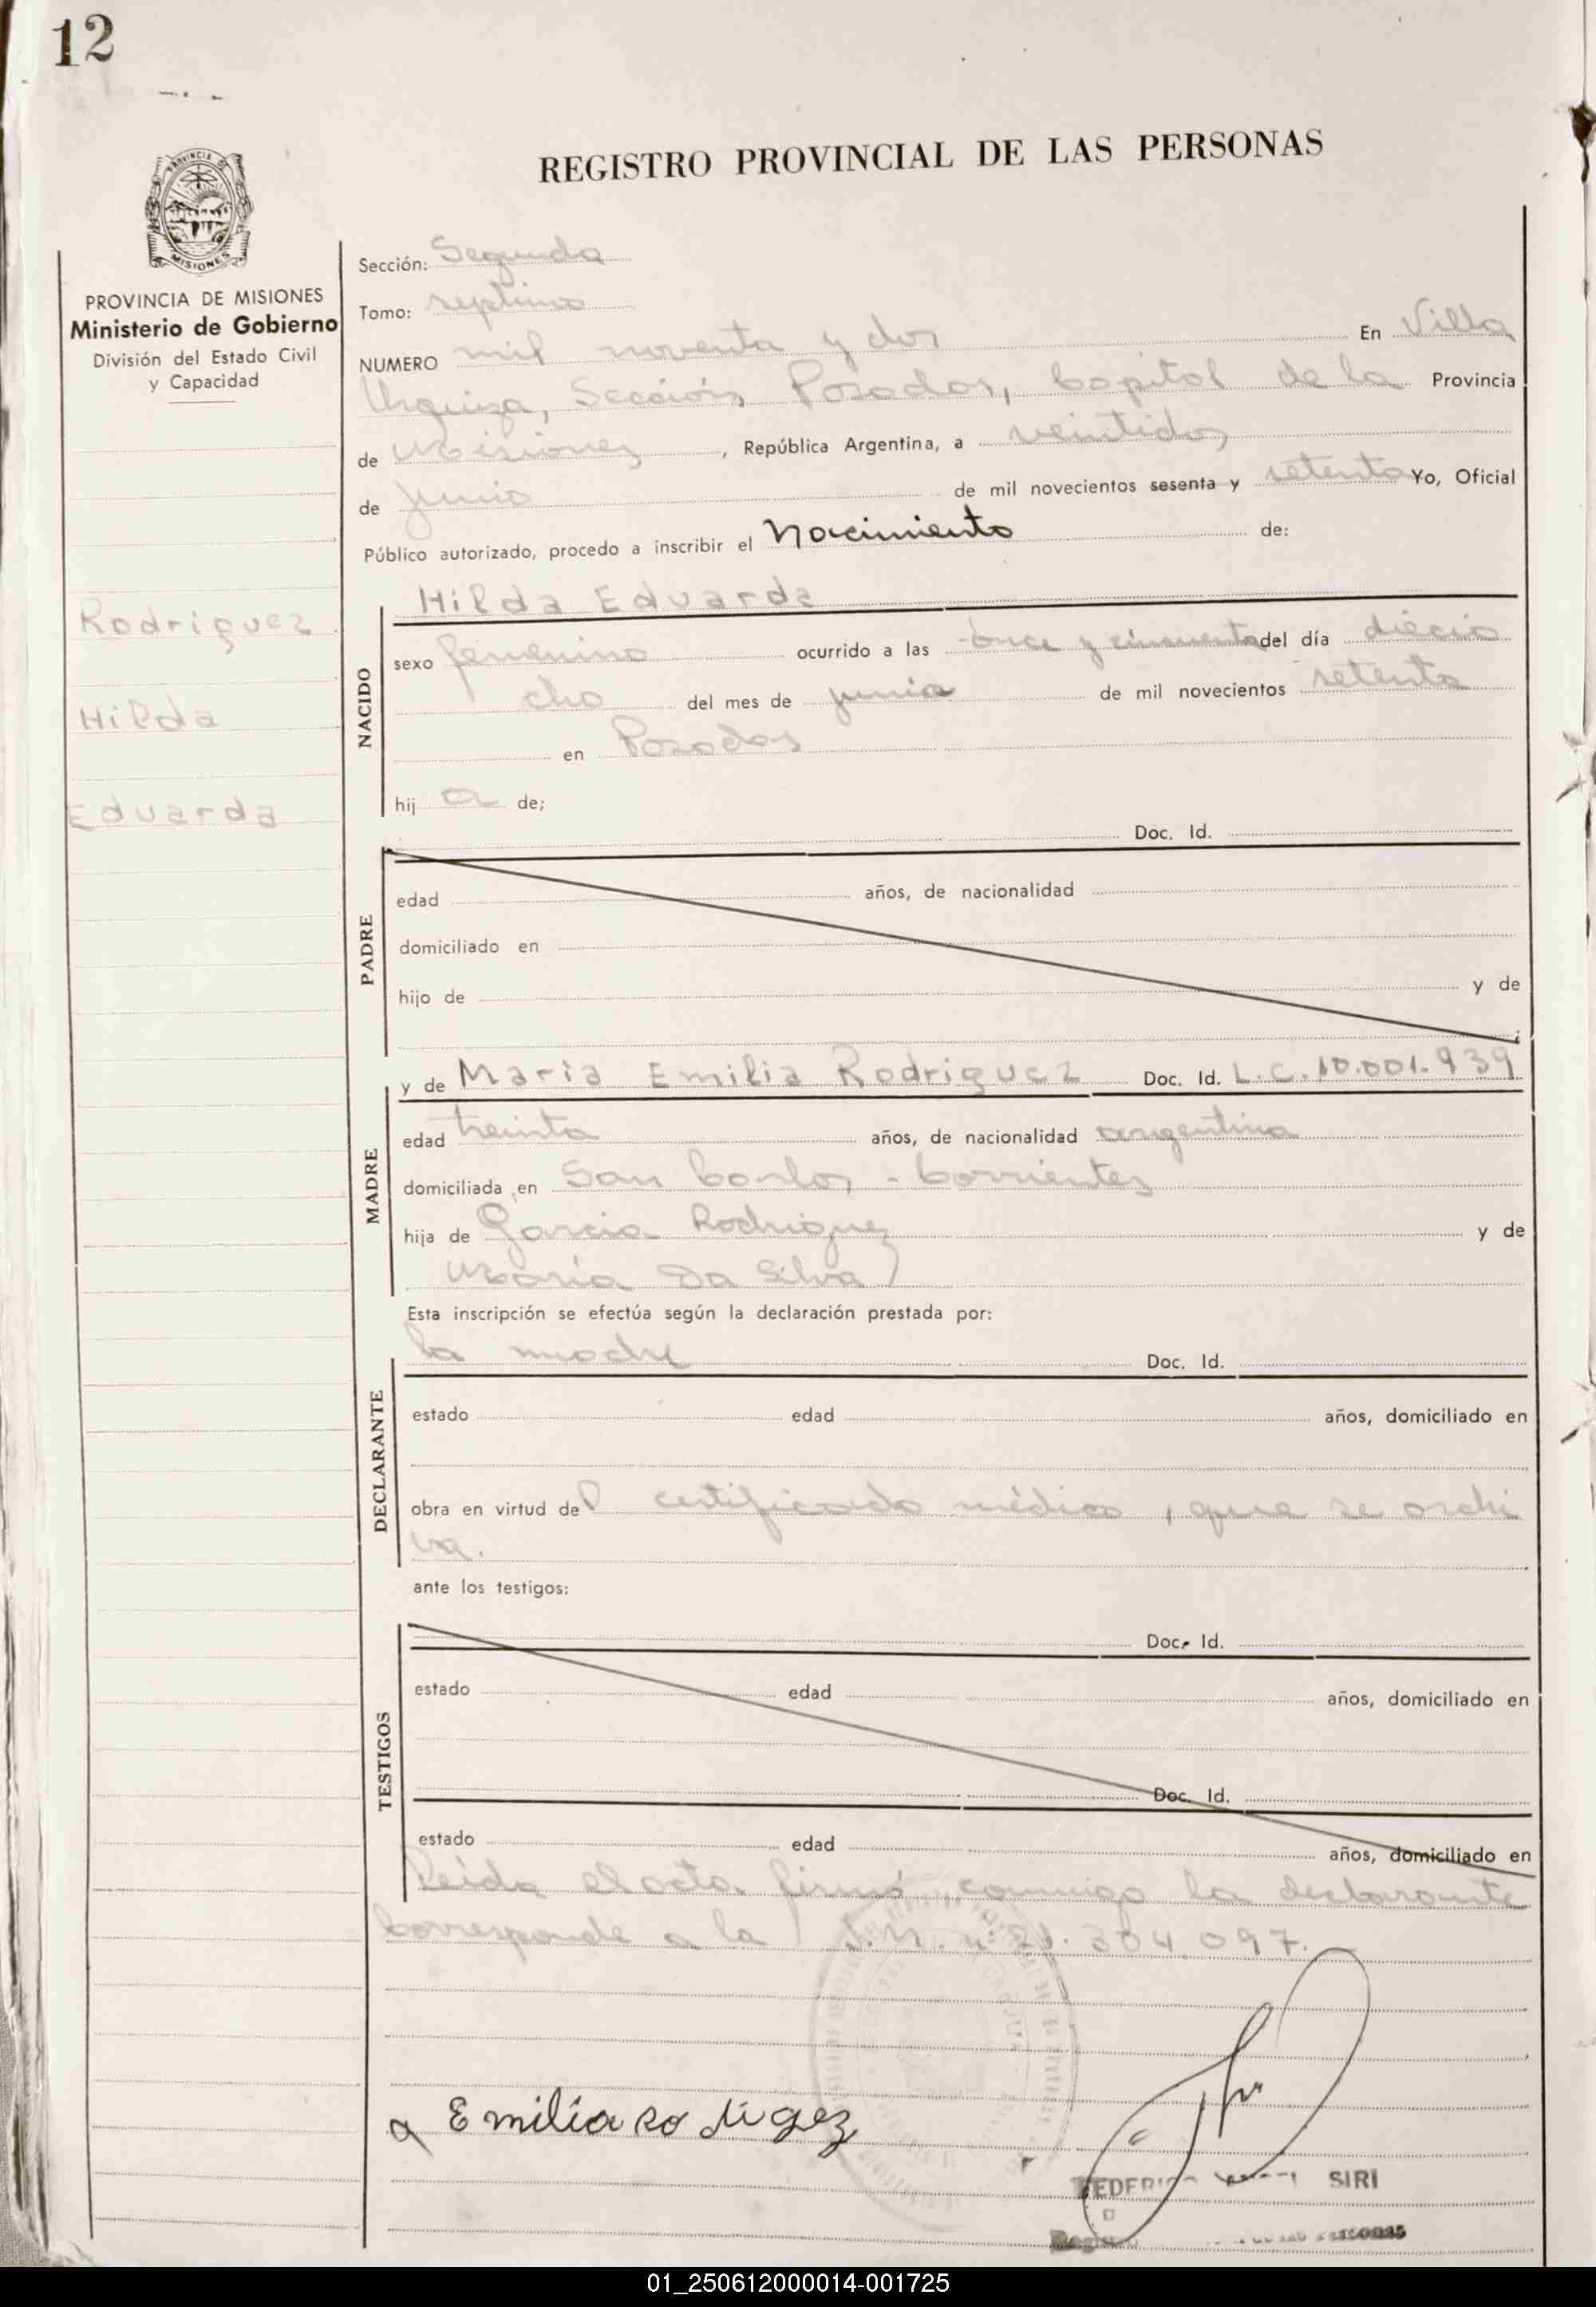 12
REGISTRO PROVINCIAL DE LAS PERSONAS
PROVINCIA DE
MISIONES
PROVINCIA DE MISIONES
Ministerio de Gobierno
División del Estado Civil
y Capacidad
Rodriguez
Hilda
Eduarda
Sección: Segunda
Tomo: septimo
NUMERO mil noventa y dos En Villa
Urquiza, Sección Posadas, Capital de la Provincia
de Misiones, República Argentina, a veintidos
de junio de mil novecientos sesenta y setenta Yo, Oficial
Público autorizado, procedo a inscribir el Nacimiento de:
NACIDO
Hilda Eduarda
sexo femenino ocurrido a las once y cincuenta del día diecio
cho del mes de junio de mil novecientos setenta
en Posadas
hija de;
PADRE
Doc. Id.
edad años, de nacionalidad
domiciliado en
hijo de y de
MADRE
y de Maria Emilia Rodriguez Doc. Id. L.C.10.001.939
edad treinta años, de nacionalidad argentina
domiciliada en San Carlos - Corrientes
hija de Garcia Rodriguez y de
Maria Da Silva
Esta inscripción se efectúa según la declaración prestada por:
DECLARANTE
la madre Doc. Id.
estado edad años, domiciliado en
obra en virtud del certificado médico, que se archi
va.
ante los testigos:
TESTIGOS
Doc. Id.
estado edad años, domiciliado en
Doc. Id.
estado edad años, domiciliado en
Leida el acta firmó conmigo la declarante
Corresponde a la 304.097.
Emilia Rodrigez
SIRI
01_250612000014-001725